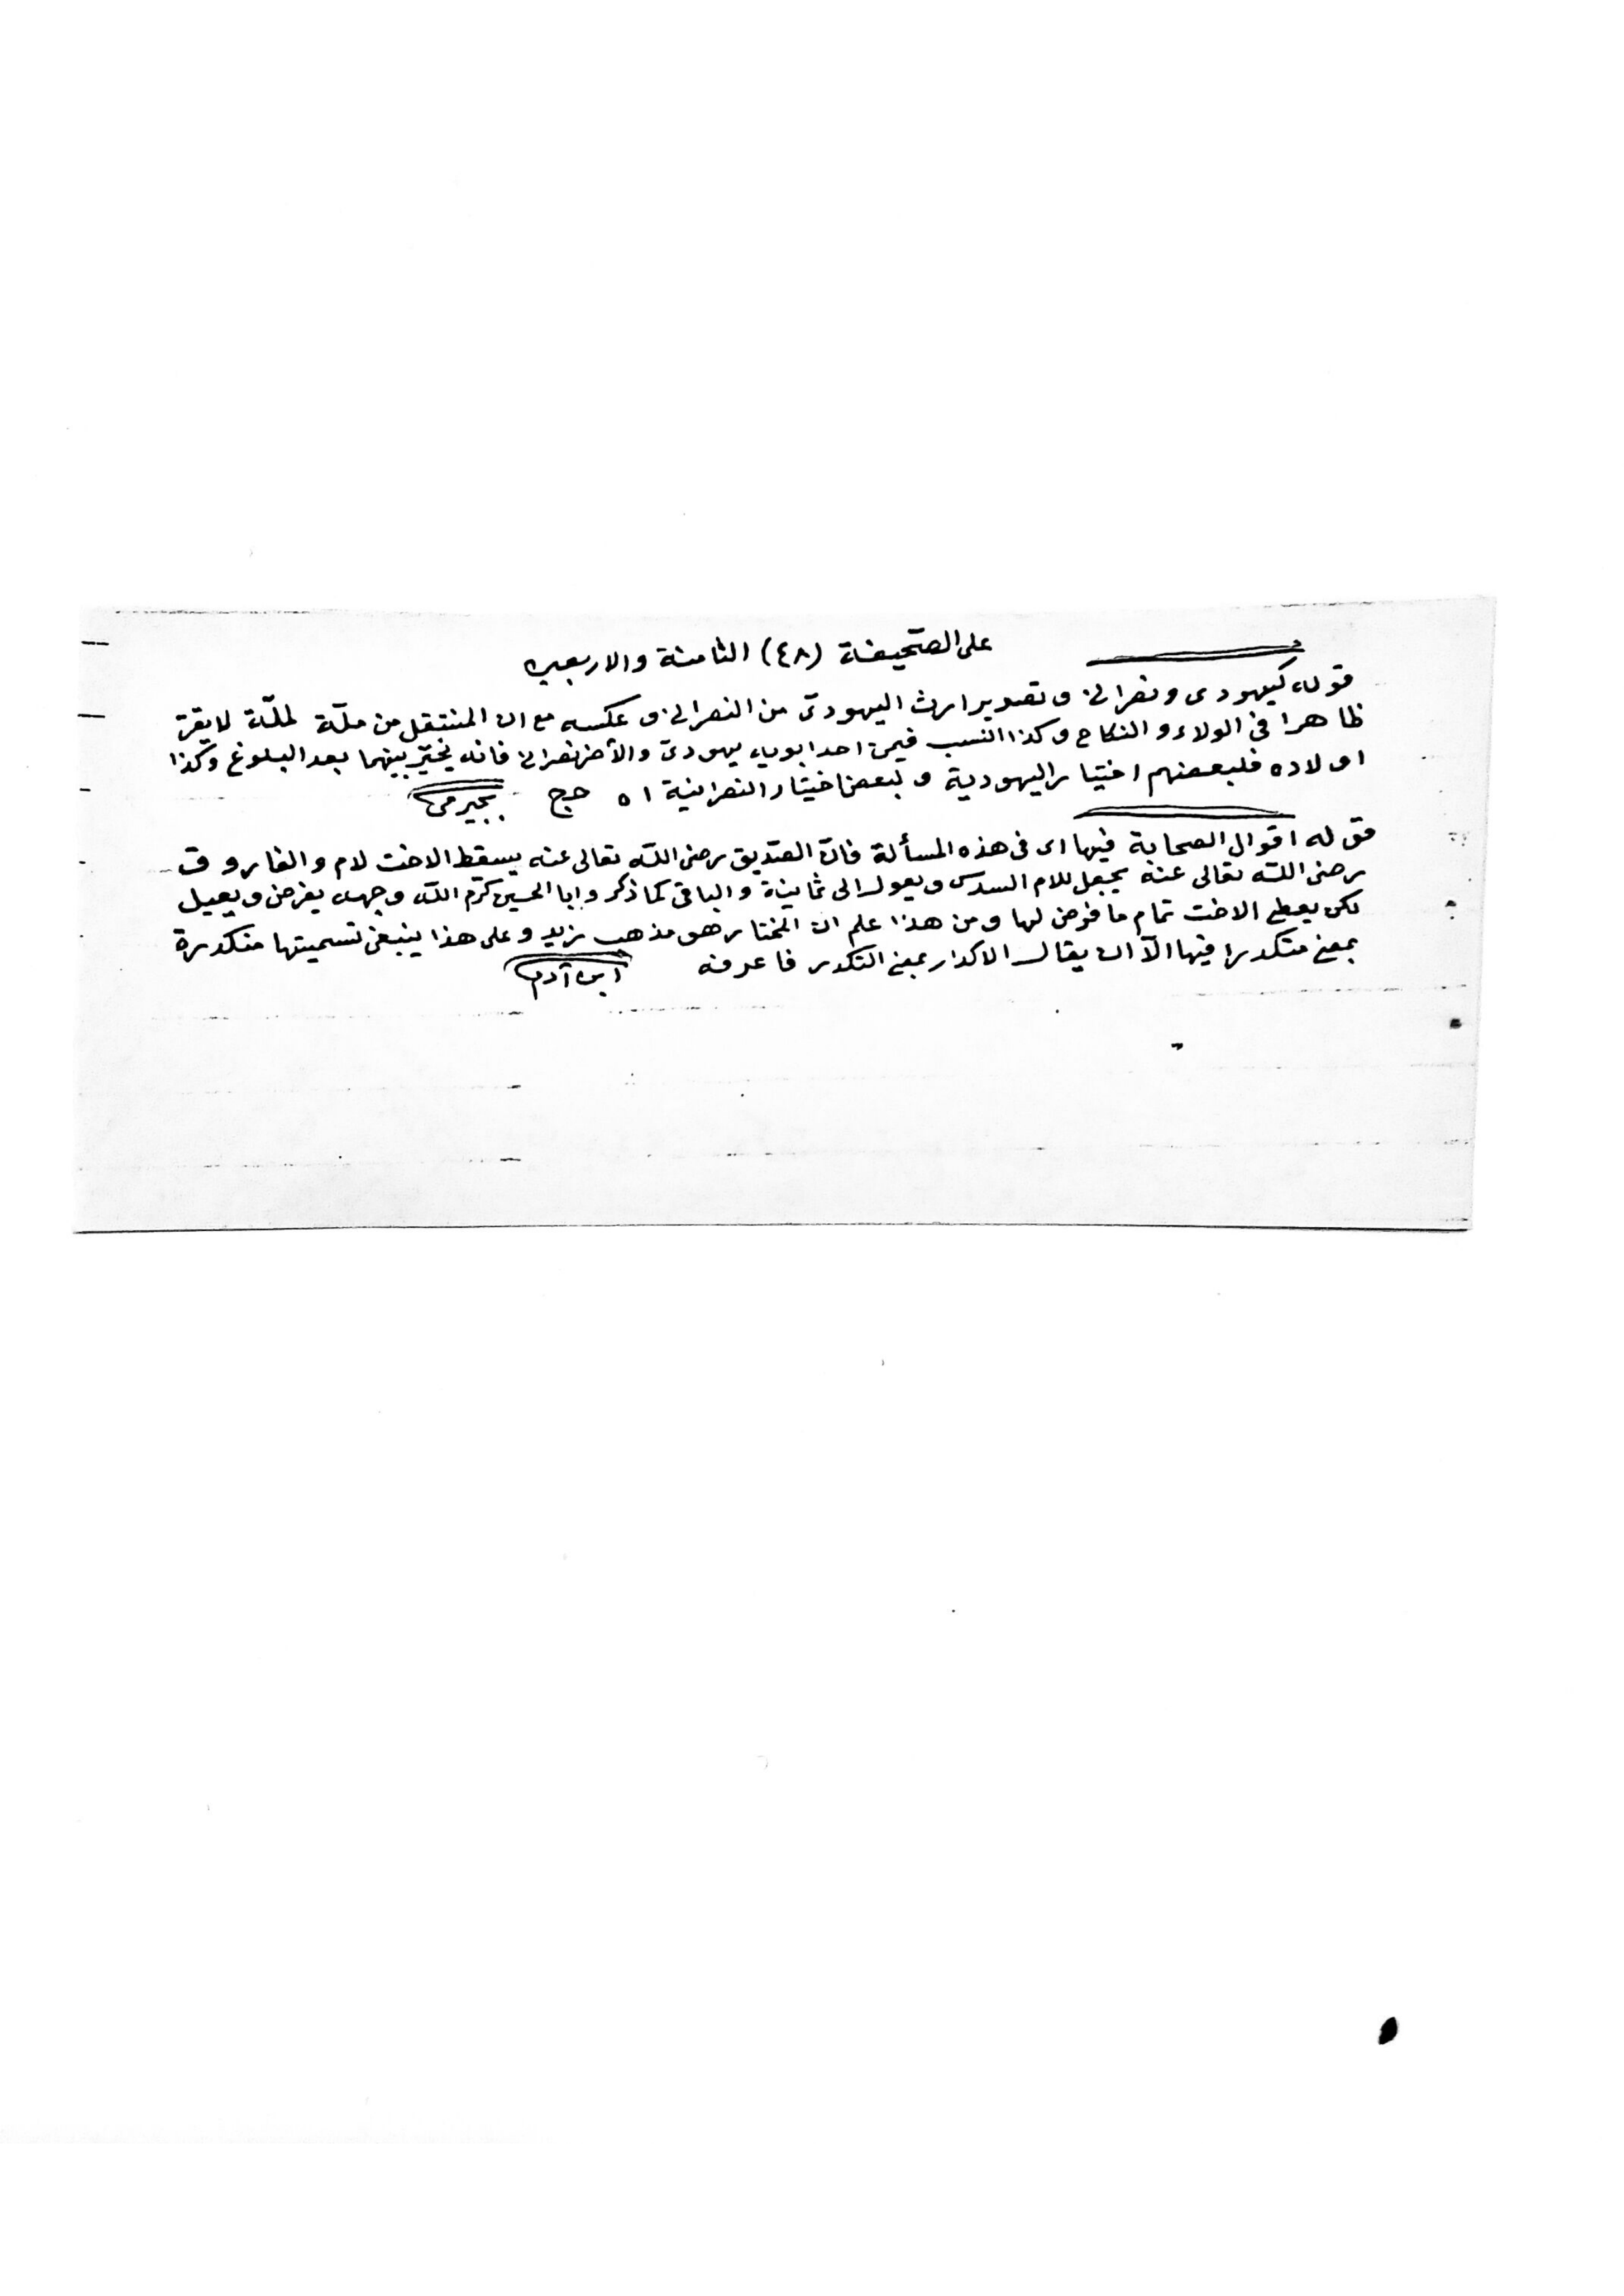 على الصحيفة (٤٨) الثامنة والاربعين
قوله كيهودى ونصرانى وتصوير ارث اليهودىّ من النصرانى وعكسه مع ان المنتقل من ملّة لملّة لا يقرّ
ظاهرا فى الولاء و النكاح وكذا النسب فيمن احد ابويه يهودىّ والأخر نصرانى فانه يخيّر بينهما بعد البلوغ وكذا
اولاده فلبعضهم اختيار اليهودية و لبعض اختيار النصرانية ا ه حج بجيرمى
قوله اقوال الصحابة فيها اى فى هذه المسألة فانّ الصدّيق رضى اللّه تعالى عنه يسقط الاخت لام و الفاروق
رضى اللّه تعالى عنه يجعل للام السدس ويعول الى ثمانية و الباقى كما ذكر و ابا الحسين كرّم اللّه وجهه يفرض ويعيل
لكن يعطى الاخت تمام ما فرض لها ومن هذا علم ان المختار هو مذهب زيد وعلى هذا ينبغى تسميتها متكدرة
بمعنى متكدرا فيها الّا ان يقال الاكدار بمعنى التكدر فاعرفه ابن آدم